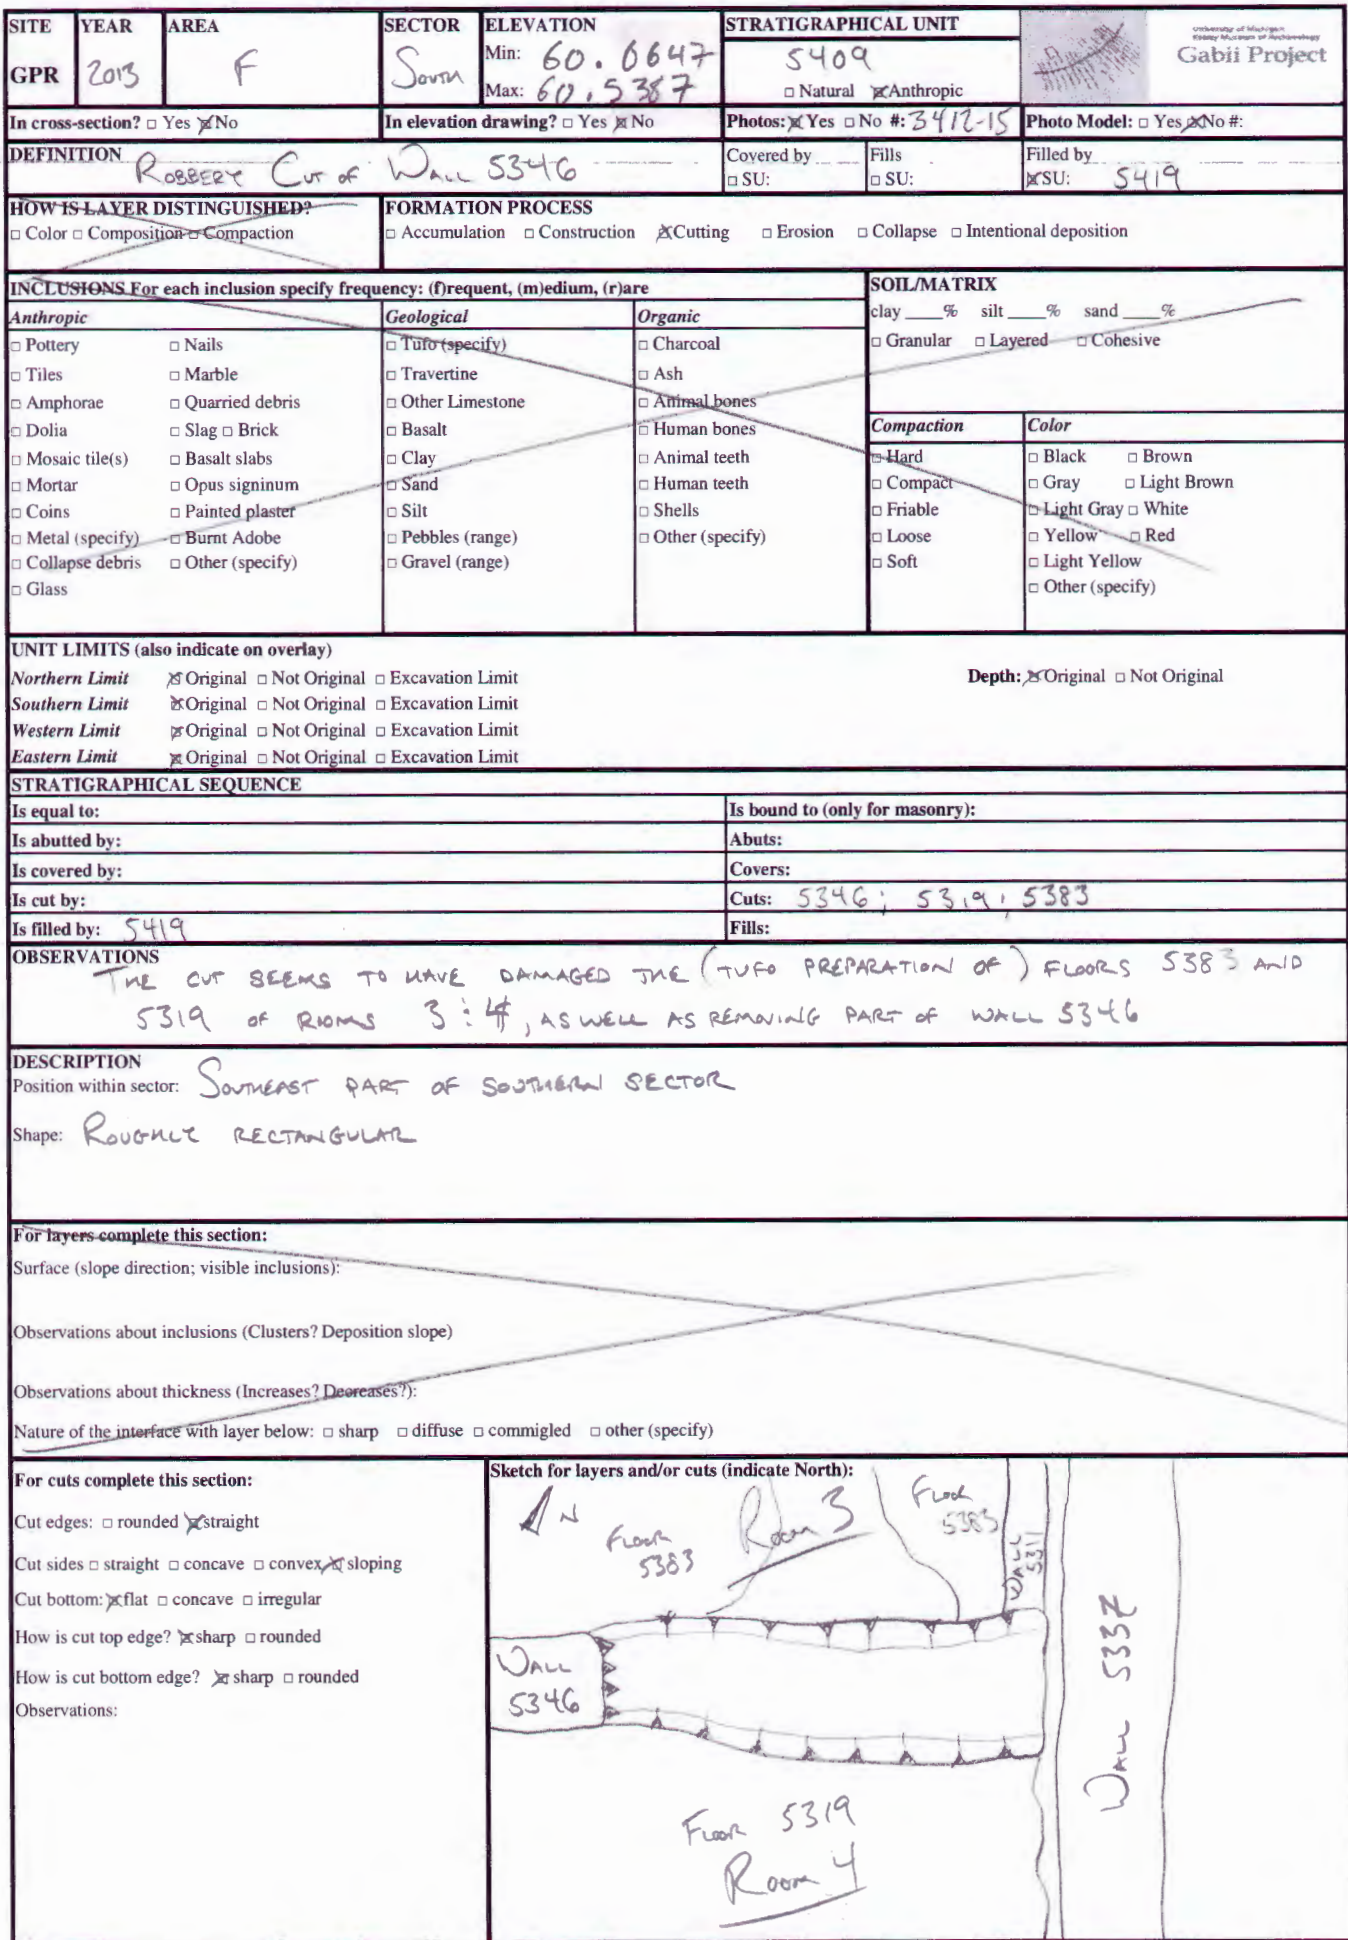 SITE YEAR AREA SECTOR ELEVATION STRATIGRAPHICAL UNIT
GPR 2013 F South Min: 60.0647 5409
Max: 60.5387 □ Natural ☒ Anthropic
University of Michigan
Kelsey Museum of Archaeology
Gabii Project
In cross-section? □ Yes ☒ No In elevation drawing? □ Yes ☒ No Photos: ☒ Yes □ No #: 3412-15 Photo Model: □ Yes ☒ No #:
DEFINITION ROBBERY CUT OF WALL 5346 Covered by □ SU: Fills □ SU: Filled by ☒ SU: 5419
HOW IS LAYER DISTINGUISHED?
□ Color □ Composition □ Compaction
FORMATION PROCESS
□ Accumulation □ Construction ☒ Cutting □ Erosion □ Collapse □ Intentional deposition
INCLUSIONS For each inclusion specify frequency: (f)requent, (m)edium, (r)are
Anthropic
□ Pottery □ Nails
□ Tiles □ Marble
□ Amphorae □ Quarried debris
□ Dolia □ Slag □ Brick
□ Mosaic tile(s) □ Basalt slabs
□ Mortar □ Opus signinum
□ Coins □ Painted plaster
□ Metal (specify) □ Burnt Adobe
□ Collapse debris □ Other (specify)
□ Glass
Geological
□ Tufo (specify)
□ Travertine
□ Other Limestone
□ Basalt
□ Clay
□ Sand
□ Silt
□ Pebbles (range)
□ Gravel (range)
Organic
□ Charcoal
□ Ash
□ Animal bones
□ Human bones
□ Animal teeth
□ Human teeth
□ Shells
□ Other (specify)
SOIL/MATRIX
clay ____% silt ____% sand ____%
□ Granular □ Layered □ Cohesive
Compaction
□ Hard
□ Compact
□ Friable
□ Loose
□ Soft
Color
□ Black □ Brown
□ Gray □ Light Brown
□ Light Gray □ White
□ Yellow □ Red
□ Light Yellow
□ Other (specify)
UNIT LIMITS (also indicate on overlay)
Northern Limit ☒ Original □ Not Original □ Excavation Limit Depth: ☒ Original □ Not Original
Southern Limit ☒ Original □ Not Original □ Excavation Limit
Western Limit ☒ Original □ Not Original □ Excavation Limit
Eastern Limit ☒ Original □ Not Original □ Excavation Limit
STRATIGRAPHICAL SEQUENCE
Is equal to: Is bound to (only for masonry):
Is abutted by: Abuts:
Is covered by: Covers:
Is cut by: Cuts: 5346; 5319; 5383
Is filled by: 5419 Fills:
OBSERVATIONS
THE CUT SEEMS TO HAVE DAMAGED THE (TUFO PREPARATION OF) FLOORS 5383 AND
5319 OF ROOMS 3 : 4, AS WELL AS REMOVING PART OF WALL 5346
DESCRIPTION
Position within sector: SOUTHEAST PART OF SOUTHERN SECTOR
Shape: ROUGHLY RECTANGULAR
For layers complete this section:
Surface (slope direction; visible inclusions):
Observations about inclusions (Clusters? Deposition slope)
Observations about thickness (Increases? Decreases?):
Nature of the interface with layer below: □ sharp □ diffuse □ commigled □ other (specify)
For cuts complete this section:
Cut edges: □ rounded ☒ straight
Cut sides □ straight □ concave □ convex ☒ sloping
Cut bottom: ☒ flat □ concave □ irregular
How is cut top edge? ☒ sharp □ rounded
How is cut bottom edge? ☒ sharp □ rounded
Observations:
Sketch for layers and/or cuts (indicate North):
N
FLOOR 5383
Room 3
FLOOR 5383
WALL 5311
WALL 5337
WALL 5346
FLOOR 5319
Room 4